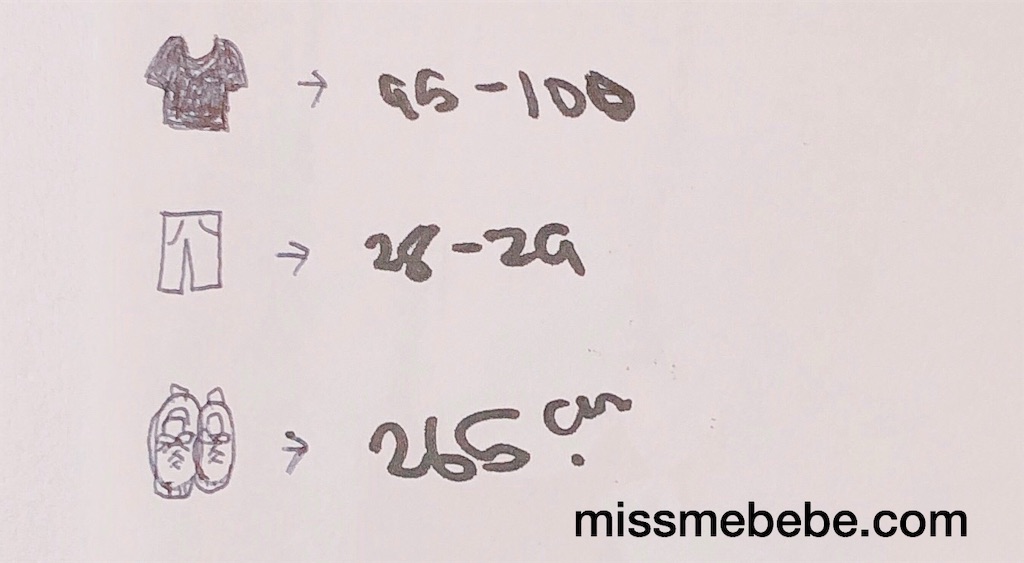 → 95-100
→ 28-29
→ 265 cm.
missmebebe.com